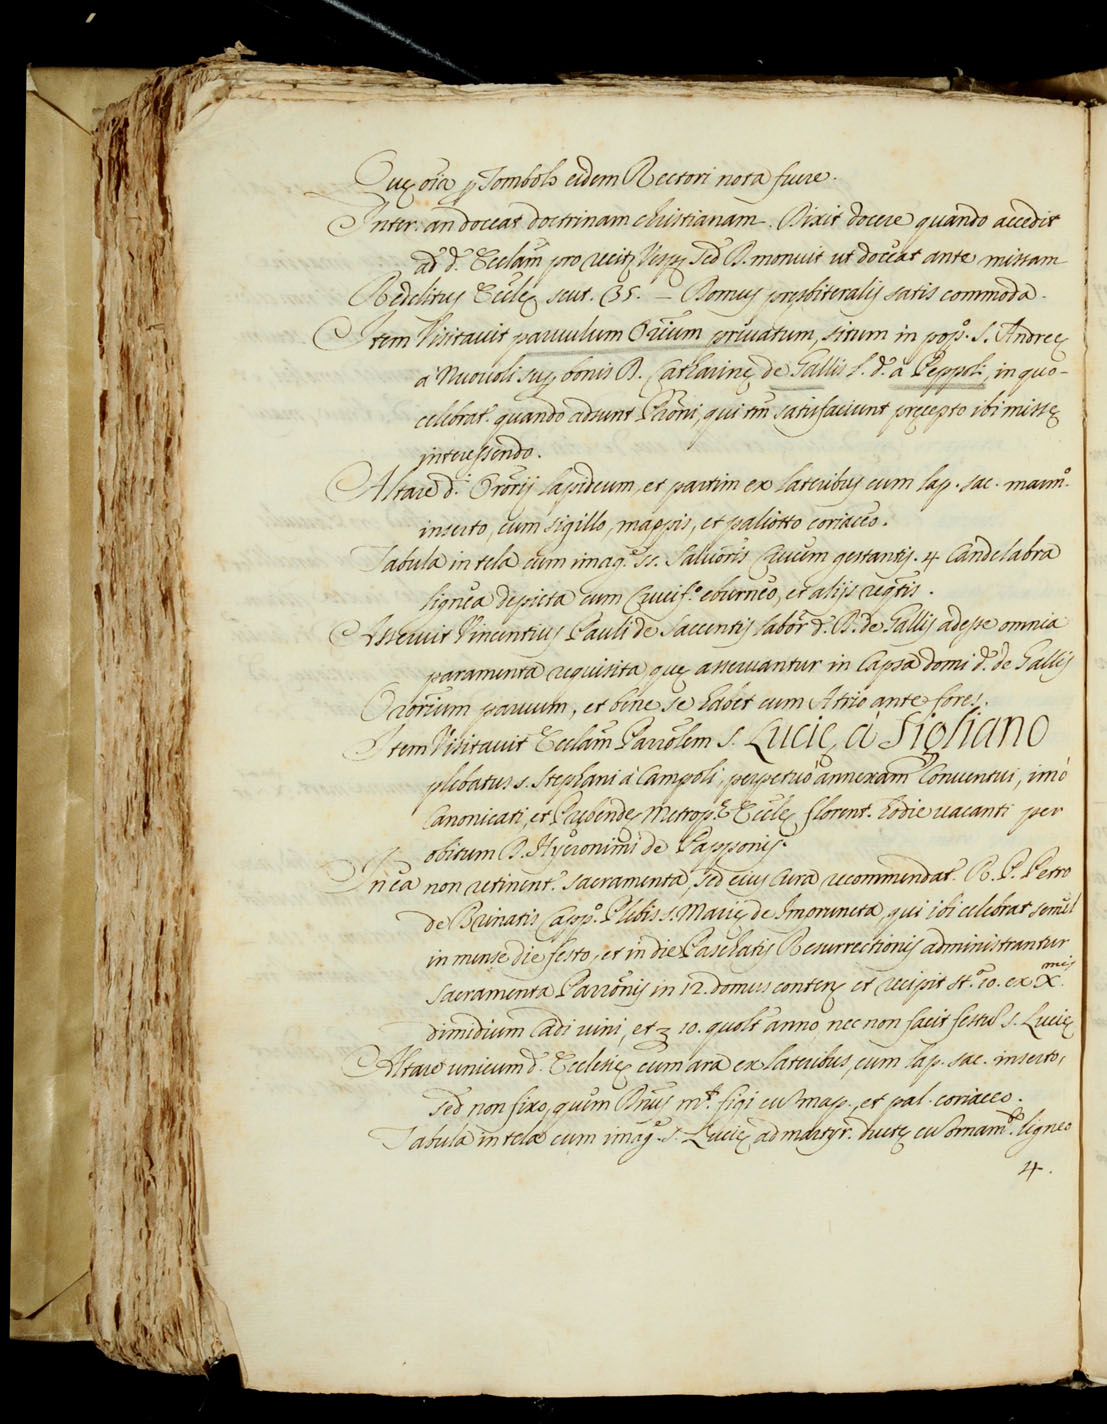 Quę oia p Tombolo eidem Rectori nota fuere.
Inter. an doceat doctrinam christianam. Dixit docere quando accedit
ad d. Ecclam pro recit Vesp sed D. monuit ut doceat ante missam
Redditus Ecclę scut. 35. — Domus presbiteralis satis commoda.
Item Visitavit parvulum Orium privatum, situm in pop. S. Andreę
a Nuovoli sup bonis D. Catharinę de Gallis s. d. a Peppoli, in quo
celebrat. quando adsunt Proni, qui tn satisfaciunt pręcepto ibi missę
interessendo.
Altare d. Ororij lapideum, et partim ex lateribus cum lap. sac. marm.
inserto, cum sigillo, mappis, et paliotto coriaceo.
Tabula in tela cum imag. SS. Salvoris Crucem gestantis. 4 Candelabra
lignea depicta cum Crucif. eburneo, et alijs reqtis.
Asseruit Vincentius Pauli de Saccentis labor d. D. de Gallis adesse omnia
paramenta requisita, que asservantur in Capsa domi d. de Gallis
Ororium parvum, et bene se habet cum Atrio ante fores.
Item Visitavit Ecclam Parrolem S. Lucię à Sigliano
plebatus S. Stephani à Campoli, perpetuò annexam Conventui, imò
Canonicati, et Prebendę Metrop. Ecclę Florent. hodie vacanti per
obitum D. Hyeronimi de Papponis.
In ea non retinent. sacramenta, sed eius cura recommendat. R. P. Petro
de Brinatis Capp. Plebis S. Marię de Impruneta, qui ibi celebrat semel
in mense die festo, et in die Paschatis Resurrectionis administrantur
sacramenta Parronis in 12. domus conten et recipit st. 10. ex X mis
dimidium Cadi vini, et 10. quolt anno, nec non facit festu S. Lucię
Altare unicum d. Ecclesię cum ara ex lateribus, cum lap. sac. inserto,
sed non fixo, quem Dnus mt. figi cu map., et pal. coriaceo.
Tabula in tela cum imag. S. Lucię ad martyr. ductę cu ornam.to ligneo
4.